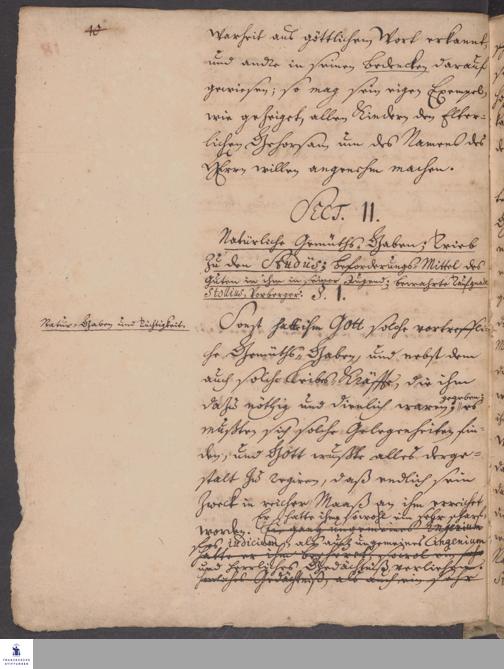 warheit aus göttlichen Wort erkannt,
und andre in seinen bedencken darauf
gewiesen; so mag sein eigen Exempel,
wie gezeiget, allen Kindern den Elter-
lichen Gehorsam um des Namens des
HErrn willen angenehm machen.
SECT. II.
Natürliche Gemüths-Gaben; Trieb
zu den Studiis; beforderungs-Mittel des
Guten in ihm in seiner Jugend; bewahrte
Stollius, Vorberger. §. 1.
Natur-Gaben und Tüchtigkeit.
Sonst hatte ihm Gott solche vortreffli-
che Gemüths-Gaben, und nebst dem
auch solche Leibes-Kräffte, die ihm
dazu nöthig und dienlich waren, gegeben; es
mußten sich solche Gelegenheiten fin-
den, und Gott wußte alles derge-
stalt zu regiren, daß endlich sein
Zweck in reicher Maaß an ihm erreicht
worden. Er hatte ihm sowol ein sehr scharf-
Judicium, als auch ungemeines Ingenium
und herrliches Gedächtniß verliehen.
herrliches Gedächtniß, als auch ein sehr
FRANCKESCHE
STIFTUNGEN